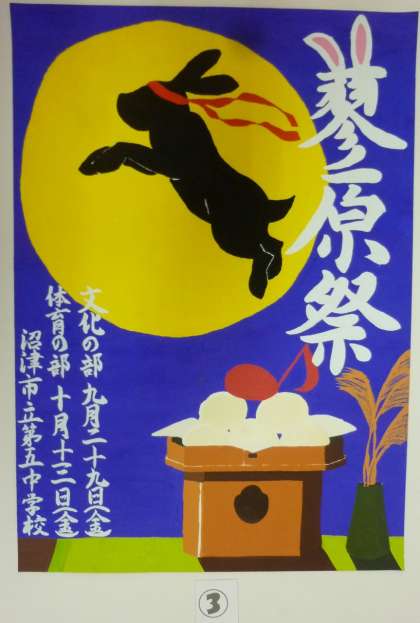 蓼原祭
文化の部 九月二十九日(金)
体育の部 十月十三日(金)
沼津市立第五中学校
③